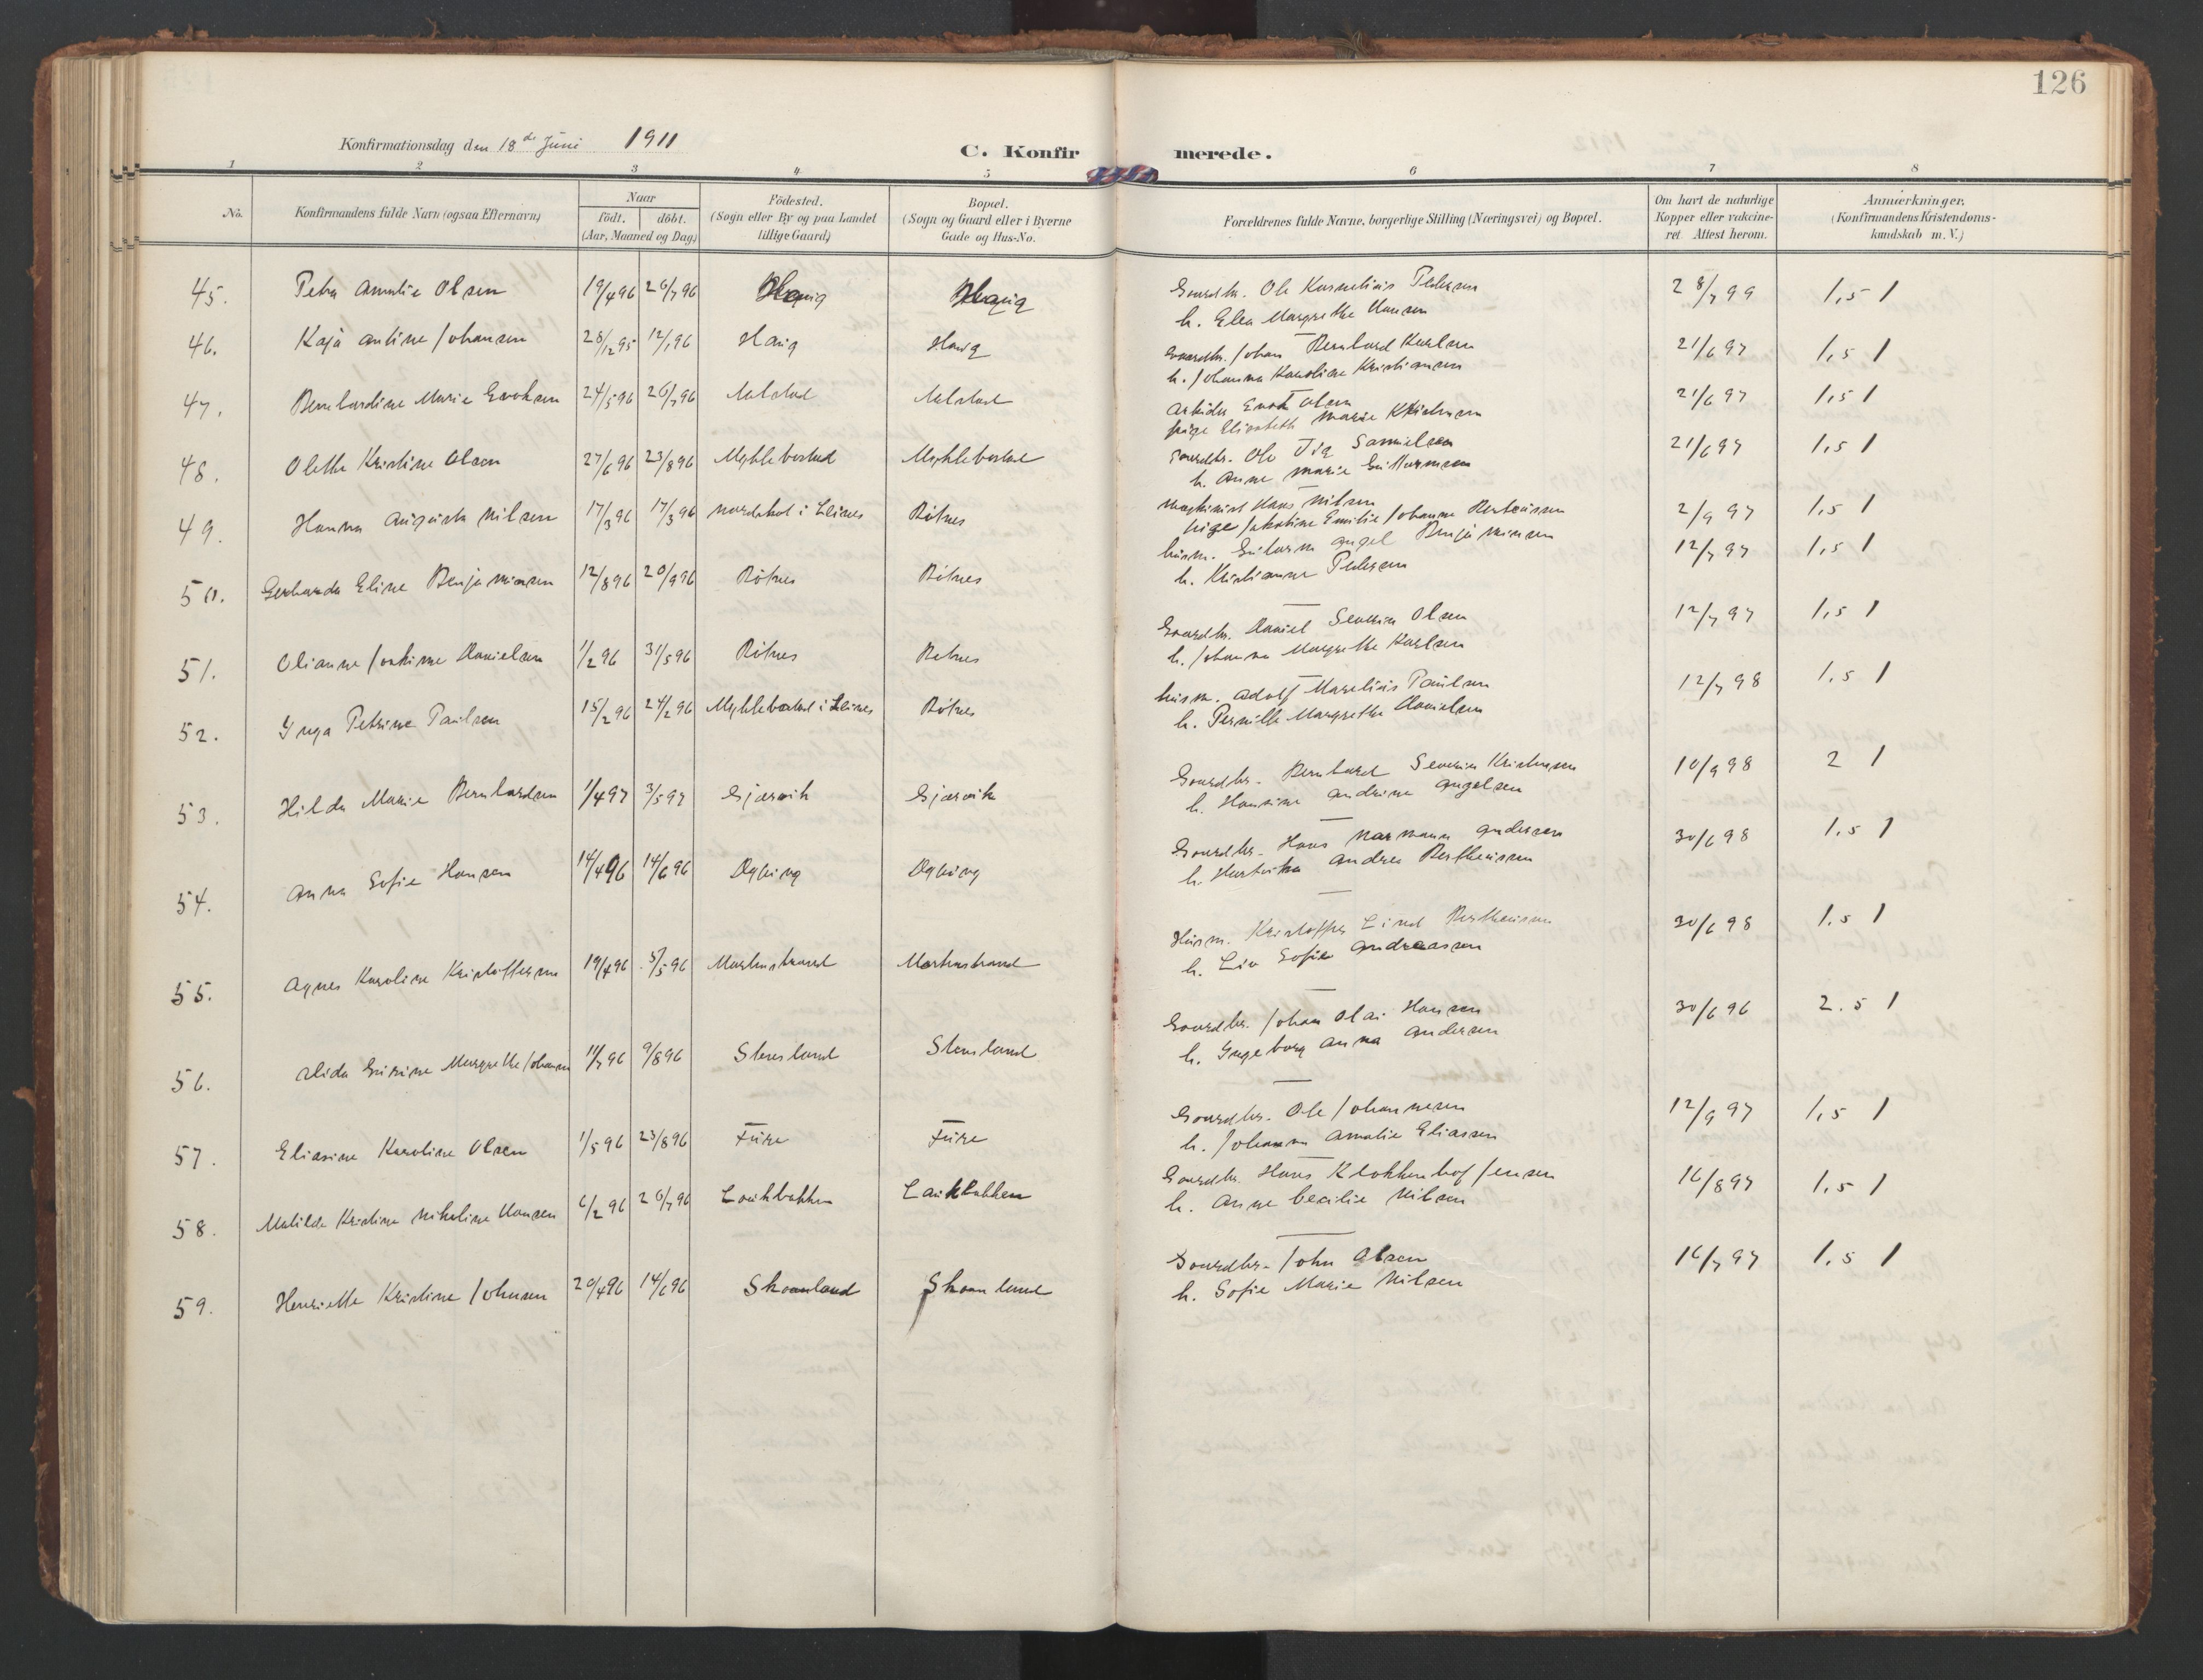 126
Konfirmationsdag den 18de Juni 1911
C. Konfirmerede.
1 2 3 4 5 6 7 8
No.
Konfirmandens fulde Navn (ogsaa Efternavn)
Naar
födt. döbt.
(Aar, Maaned og Dag)
Födested.
(Sogn eller By og paa Landet
tillige Gaard)
Bopæl.
(Sogn og Gaard eller i Byerne
Gade og Hus-No.
Forældrenes fulde Navne, borgerlige Stilling (Næringsvei) og Bopæl.
Om havt de naturlige
Kopper eller vakcine-
ret Attest herom.
Anmærkninger.
(Konfirmandens Kristendoms-
kundskab m. V.)
45. Petra Amalie Olsen 19/4 96 26/7 96 Haug Haug
Gaardbr. Ole Kornelius Pedersen
h. Elen Margrethe Hansen
28/7 99 1,5 1
46. Kaja Antine Johansen 28/12 95 12/1 96 Haug Haug
Gaardbr. Johan Bernhard Karlsen
h. Johanna Karoline Kristiansen
21/6 97 1,5 1
47. Bernhardine Marie Enoksen 24/5 96 26/7 96 Aalstad Aalstad
Arbeider Enok Olsen
pige Elisabeth Marie Kristensen
21/6 97 1,5 1
48. Olette Kristine Olsen 27/6 96 23/8 96 Myklebostad Myklebostad
Gaardbr. Ole Samuelsen
h. Anne Marie Guttormsen
21/6 97 1,5 1
49. Hanna Augusta Nilsen 17/3 96 17/3 96 Nordskot i Leines Rötnes
Maskinist Hans Nilsen
pige Jakobine Emilie Johanne Berteusen
2/9 97 1,5 1
50. Gerharda Eline Benjaminsen 12/8 96 20/9 96 Rötnes Rötnes
husm. Gutorm Angel Benjaminsen
h. Kristianne Pedersen
12/7 97 1,5 1
51. Olianne Joakime Danielsen 1/2 96 31/5 96 Rötnes Rötnes
Gaardbr. Daniel Severin Olsen
h. Johanna Margrethe Karlsen
12/7 97 1,5 1
52. Inga Petrine Paulsen 15/2 96 24/2 96 Myklebostad i Leines Rötnes
husm. Adolf Marelius Paulsen
h. Pernille Margrethe Danielsen
12/7 98 1.5 1
53. Hilda Marie Bernhardsen 1/4 97 3/5 97 Gjærvik Gjærvik
Gaardbr. Bernhard Severin Kristensen
h. Hansine Andrine Angelsen
10/9 98 2 1
54. Anna Sofie Hansen 14/4 96 14/6 96 Dyping Dyping
Gaardbr. Hans Normann Andersen
h. Andrea Bertheusen
30/6 98 1.5 1
55. Agnes Karoline Kristoffersen 19/4 96 3/5 96 Marhustrand Marhustrand
Husm. Kristoffer Lind Bertheusen
h. Liv Sofie Andreassen
30/6 98 1.5 1
56. Alida Gurine Margrethe Johansen 11/7 96 9/8 96 Stensland Stensland
Gaardbr. Johan Olai Hansen
h. Ingeborg Anna Andersen
30/6 96 2.5 1
57. Eliasine Karoline Olsen 1/5 96 23/8 96 Fure Fure
Gaardbr. Ole Johannesen
h. Johanna Amalie Eliassen
12/9 97 1,5 1
58. Matilde Kristine Nikoline Hansen 6/2 96 26/7 96 Laukbakken Laukbakken
Gaardbr. Hans Klokkerhof Jensen
h. Anne Cecilie Nilsen
16/8 97 1,5 1
59. Henriette Kristine Johnsen 20/4 96 14/6 96 Skaanland Skaanland
Gaardbr. John Olsen
h. Sofie Marie Nilsen
16/7 97 1.5 1